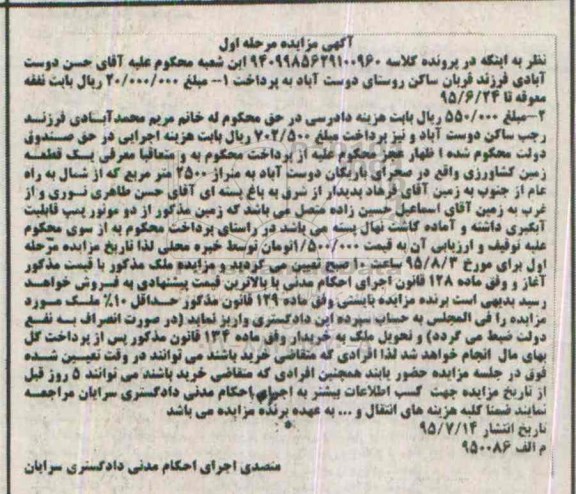 آگهی مزایده مرحله اول
نظر به اینکه در پرونده کلاسه ۹۴۰۹۹۸۵۶۲۹۱۰۰۹۶۰ این شعبه محکوم علیه آقای حسن دوست
آبادی فرزند قربان ساکن روستای دوست آباد به پرداخت ۱– مبلغ ۲۰/۰۰۰/۰۰۰ ریال بابت نفقه
معوقه تا ۹۵/۶/۲۴
۲–مبلغ ۵۵۰/۰۰۰ ریال بابت هزینه دادرسی در حق محکوم له خانم مریم محمدآبادی فرزند
رجب ساکن دوست آباد و نیز پرداخت مبلغ ۷۰۲/۵۰۰ ریال بابت هزینه اجرایی در حق صندوق
دولت محکوم شده ا ظهار عجز محکوم علیه از پرداخت محکوم به و متعاقبا معرفی یک قطعه
زمین کشاورزی واقع در صحرای باریگان دوست آباد به متراژ ۲۵۰۰ متر مربع که از شمال به راه
عام از جنوب به زمین آقای فرهاد پدیدار از شرق به باغ پسته ای آقای حسن طاهری نوری و از
غرب به زمین آقای اسماعیل حسین زاده متصل می باشد که زمین مذکور از دو موتور پمپ قابلیت
آبگیری داشته و آماده کاشت نهال پسته می باشد در راستای پرداخت محکوم به از سوی محکوم
علیه توقیف و ارزیابی آن به قیمت ۱/۵۰۰/۰۰۰تومان توسط خبره محلی لذا تاریخ مزایده مرحله
اول برای مورخ ۹۵/۸/۳ ساعت ۱۰ صبح تعیین می گردید و مزایده ملک مذکور با قیمت مذکور
آغاز و وفق ماده ۱۲۸ قانون اجرای احکام مدنی با بالاترین قیمت پیشنهادی به فروش خواهد
رسید بدیهی است برنده مزایده بایستی وفق ماده ۱۲۹ قانون مذکور حداقل ۱۰٪ ملک مورد
مزایده را فی المجلس به حساب سپرده این دادگستری واریز نماید (در صورت انصراف به نفع
دولت ضبط می گردد) و تحویل ملک به خریدار وفق ماده ۱۳۴ قانون مذکور پس از پرداخت کل
بهای مال انجام خواهد شد لذا افرادی که متقاضی خرید باشند می توانند در وقت تعیین شده
فوق در جلسه مزایده حضور یابند همچنین افرادی که متقاضی خرید باشند می توانند ۵ روز قبل
از تاریخ مزایده جهت کسب اطلاعات بیشتر به اجرای احکام مدنی دادگستری سرایان مراجعه
نمایند ضمنا کلیه هزینه های انتقال و ... به عهده برنده مزایده می باشد
تاریخ انتشار ۹۵/۷/۱۴
م الف ۹۵۰۰۸۶
متصدی اجرای احکام مدنی دادگستری سرایان